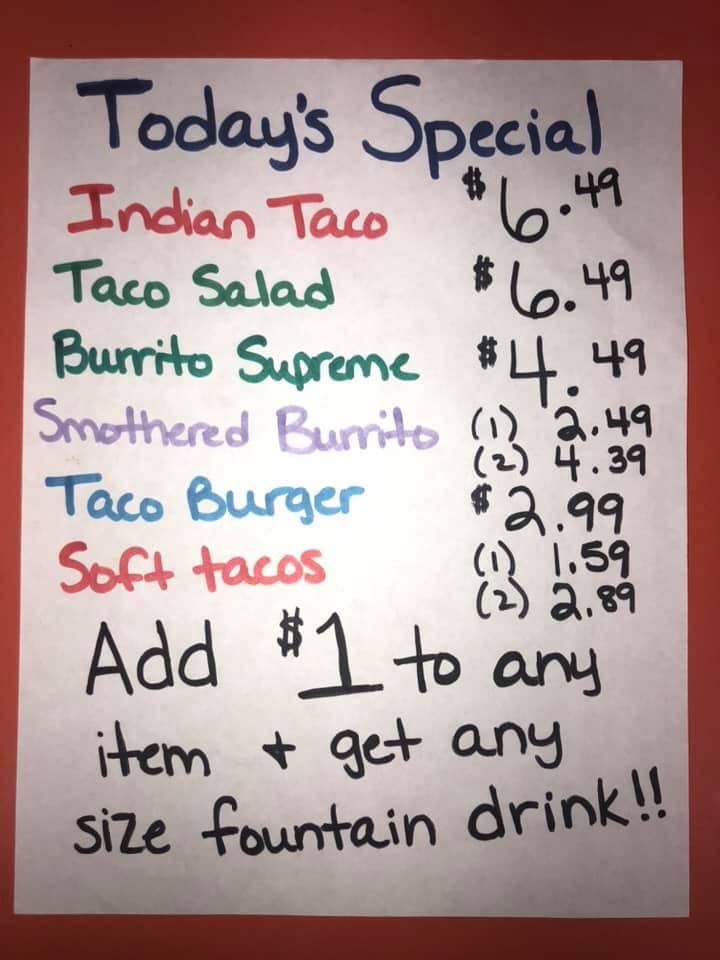 Today's Special
Indian Taco $6.49
Taco Salad $6.49
Burrito Supreme $4.49
Smothered Burrito (1) 2.49
(2) 4.39
Taco Burger $2.99
Soft tacos (1) 1.59
(2) 2.89
Add $1 to any
item + get any
size fountain drink!!